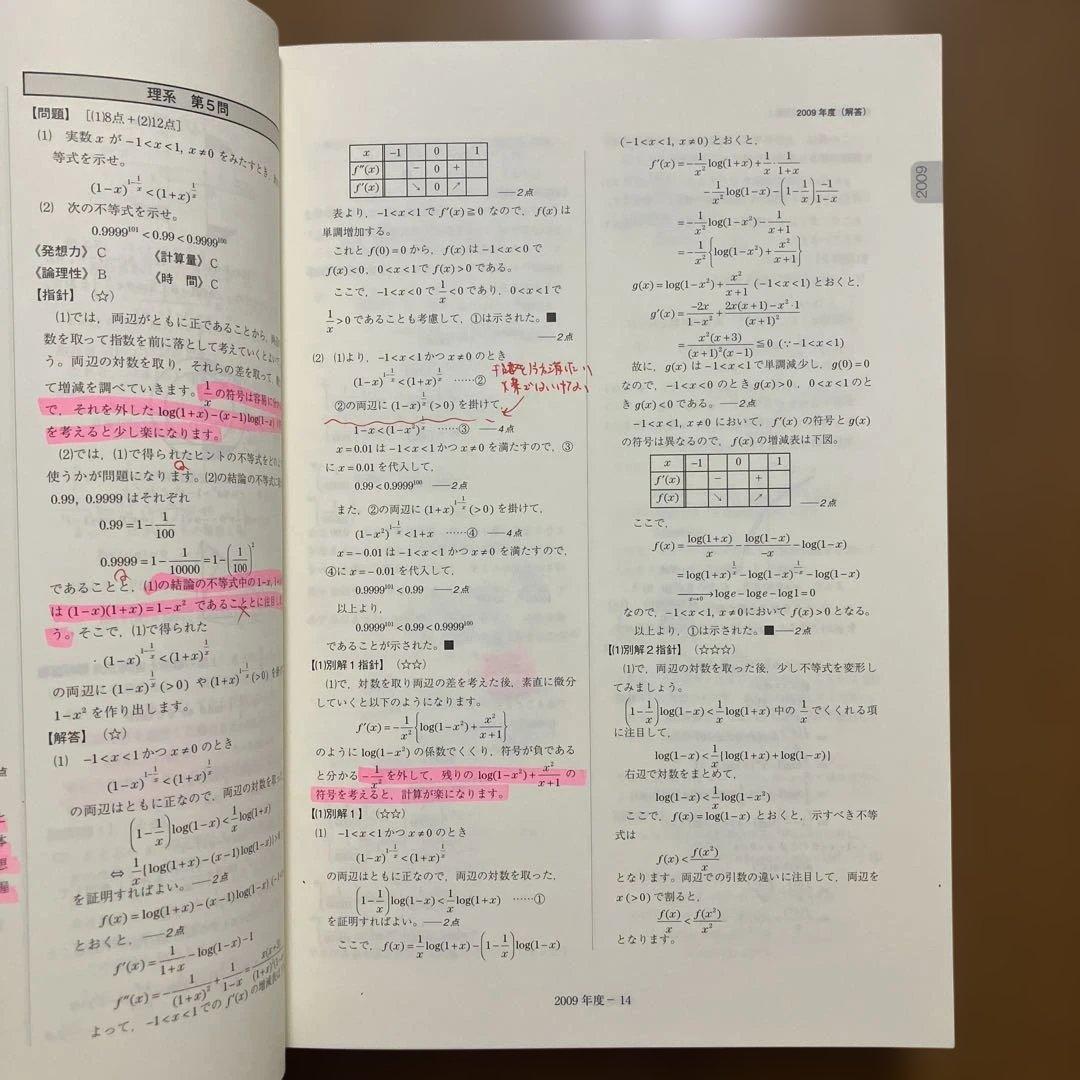 理系 第5問
【問題】 [(1)8点+(2)12点]
(1) 実数 x が −1<x<1, x≠0 をみたすとき,
等式を示せ。
(1−x)^{1−1/x}<(1+x)^{1/x}
(2) 次の不等式を示せ。
0.9999^{101}<0.99<0.9999^{100}
《発想力》C 《計算量》C
《論理性》B 《時 間》C
【指針】 (☆)
(1)では, 両辺がともに正であることから,
数を取って指数を前に落として考えていくと
う。両辺の対数を取り, それらの差を取って,
て増減を調べていきます。1/x の符号は容易に
で, それを外した log(1+x)−(x−1)log(1−x)
を考えると少し楽になります。
(2)では, (1)で得られたヒントの不等式を
使うかが問題になります。(2)の結論の不等式に
0.99, 0.9999 はそれぞれ
0.99=1−1/100
0.9999=1−1/10000=1−(1/100)^2
であることと, (1)の結論の不等式中の1−x,
は (1−x)(1+x)=1−x^2 であることとに注目し
う。そこで, (1)で得られた
(1−x)^{1−1/x}<(1+x)^{1/x}
の両辺に (1−x)^{1/x}(>0) や (1+x)^{1−1/x}(>0) を
1−x^2 を作り出します。
【解答】 (☆)
(1) −1<x<1 かつ x≠0 のとき
(1−x)^{1−1/x}<(1+x)^{1/x}
の両辺はともに正なので, 両辺の対数を取っ
(1−1/x)log(1−x)<1/x log(1+x)
⇔ 1/x{log(1+x)−(x−1)log(1−x)}>0
を証明すればよい。―2点
f(x)=log(1+x)−(x−1)log(1−x)
とおくと, ―2点
f'(x)=1/(1+x)−log(1−x)−1
f''(x)=−1/(1+x)^2+1/(1−x)=
よって, −1<x<1 での f'(x) の増減表は
x −1 0 1
f''(x) − 0 +
f'(x) ↘ 0 ↗ ―2点
表より, −1<x<1 で f'(x)≧0 なので, f(x) は
単調増加する。
これと f(0)=0 から, f(x) は −1<x<0 で
f(x)<0, 0<x<1 で f(x)>0 である。
ここで, −1<x<0 で 1/x<0 であり, 0<x<1 で
1/x>0 であることも考慮して, ①は示された。■
―2点
(2) (1)より, −1<x<1 かつ x≠0 のとき
(1−x)^{1−1/x}<(1+x)^{1/x} ……②
②の両辺に (1−x)^{1/x}(>0) を掛けて,
1−x<(1−x^2)^{1/x} ……③ ―4点
x=0.01 は −1<x<1 かつ x≠0 を満たすので, ③
に x=0.01 を代入して,
0.99<0.9999^{100} ―2点
また, ②の両辺に (1+x)^{1−1/x}(>0) を掛けて,
(1−x^2)^{1−1/x}<1+x ……④ ―4点
x=−0.01 は −1<x<1 かつ x≠0 を満たすので,
④に x=−0.01 を代入して,
0.9999^{101}<0.99 ―2点
以上より,
0.9999^{101}<0.99<0.9999^{100}
であることが示された。■
【(1)別解1指針】 (☆☆)
(1)で, 対数を取り両辺の差を考えた後, 素直に微分
していくと以下のようになります。
f'(x)=−1/x^2{log(1−x^2)+x^2/(x+1)}
のように log(1−x^2) の係数でくくり, 符号が負である
と分かる −1/x^2 を外して, 残りの log(1−x^2)+x^2/(x+1) の
符号を考えると, 計算が楽になります。
【(1)別解1】 (☆☆)
(1) −1<x<1 かつ x≠0 のとき
(1−x)^{1−1/x}<(1+x)^{1/x}
の両辺はともに正なので, 両辺の対数を取った,
(1−1/x)log(1−x)<1/x log(1+x) ……①
を証明すればよい。―2点
ここで, f(x)=1/x log(1+x)−(1−1/x)log(1−x)
2009年度(解答)
2009
(−1<x<1, x≠0) とおくと,
f'(x)=−1/x^2 log(1+x)+1/x・1/(1+x)
−1/x^2 log(1−x)−(1−1/x)−1/(1−x)
=−1/x^2 log(1−x^2)−1/(x+1)
=−1/x^2{log(1−x^2)+x^2/(x+1)}
g(x)=log(1−x^2)+x^2/(x+1) (−1<x<1) とおくと,
g'(x)=−2x/(1−x^2)+(2x(x+1)−x^2・1)/(x+1)^2
=x^2(x+3)/((x+1)^2(x−1))≦0 (∵−1<x<1)
故に, g(x) は −1<x<1 で単調減少し, g(0)=0
なので, −1<x<0 のとき g(x)>0, 0<x<1 のと
き g(x)<0 である。―2点
−1<x<1, x≠0 において, f'(x) の符号と g(x)
の符号は異なるので, f(x) の増減表は下図。
x −1 0 1
f'(x) − +
f(x) ↘ ↗ ―2点
ここで,
f(x)=log(1+x)/x−log(1−x)/−x−log(1−x)
=log(1+x)^{1/x}−log(1−x)^{−1/x}−log(1−x)
⟶(x→0) log e−log e−log 1=0
なので, −1<x<1, x≠0 において f(x)>0 となる。
以上より, ①は示された。■―2点
【(1)別解2指針】 (☆☆☆)
(1)で, 両辺の対数を取った後, 少し不等式を変形し
てみましょう。
(1−1/x)log(1−x)<1/x log(1+x) 中の 1/x でくくれる項
に注目して,
log(1−x)<1/x{log(1+x)+log(1−x)}
右辺で対数をまとめて,
log(1−x)<1/x log(1−x^2)
ここで, f(x)=log(1−x) とおくと, 示すべき不等
式は
f(x)<f(x^2)/x
となります。両辺での引数の違いに注目して, 両辺を
x(>0) で割ると,
f(x)/x<f(x^2)/x^2
となります。
2009年度− 14